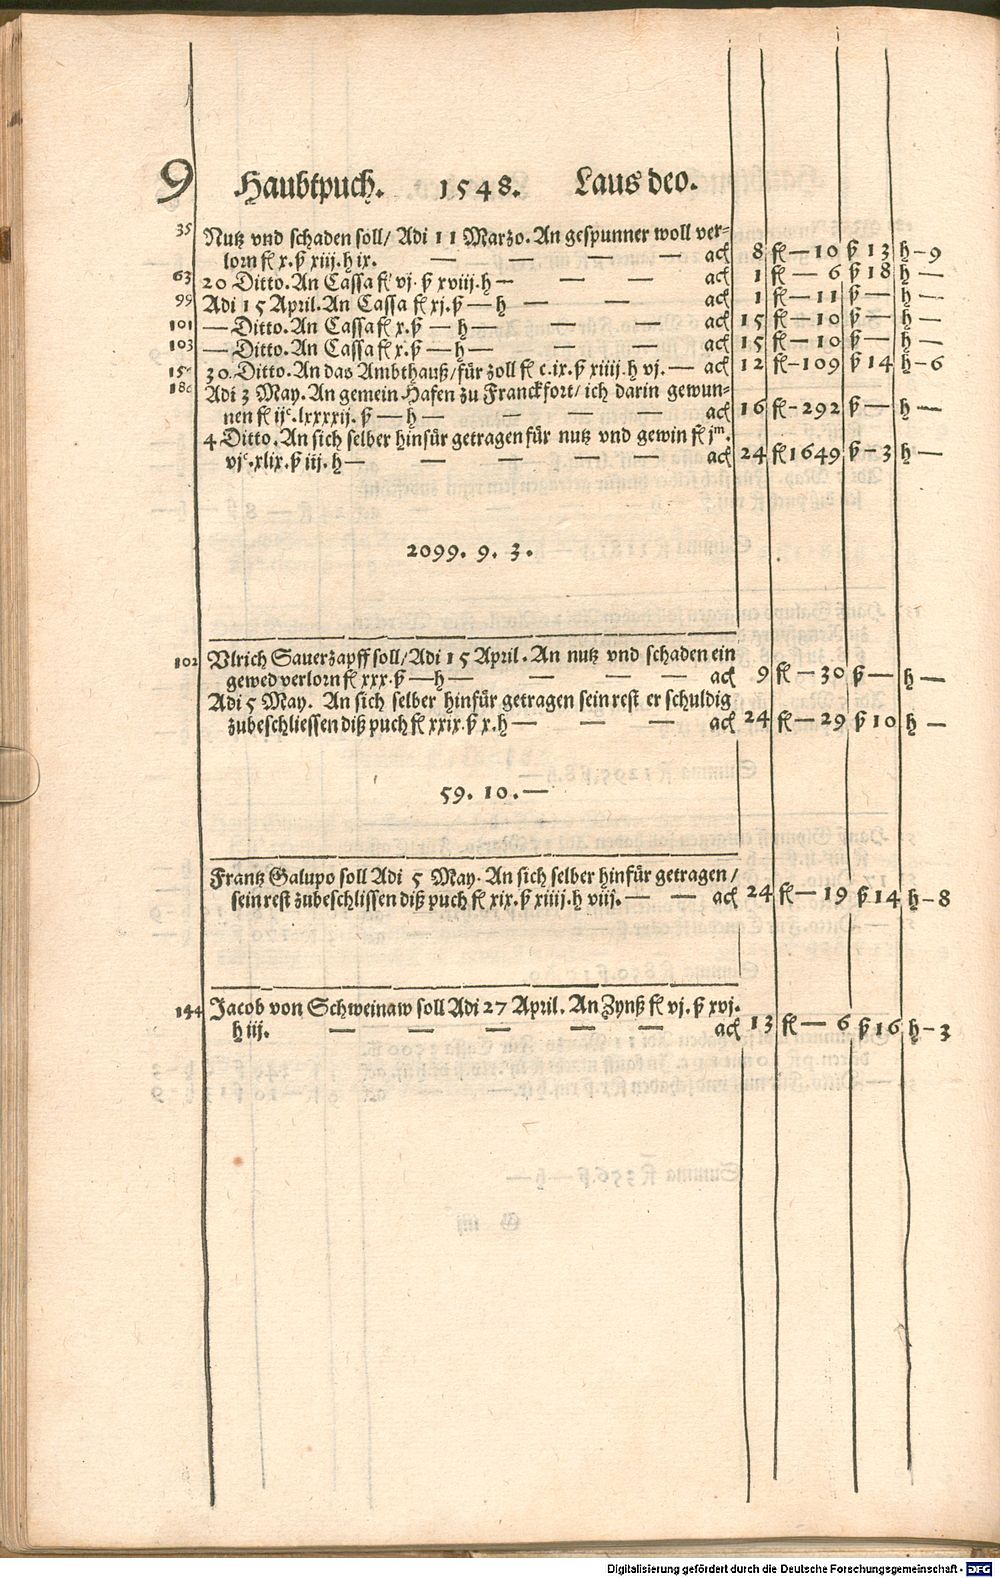 9 Haubtpuch. 1548. Laus deo.
35 Nutz vnd schaden soll/ Adi 11 Marzo. An gespunner woll ver=
lorn fl x. ß xiij. h ix. — — — — ad 8 fl — 10 ß 13 h — 9
63 20 Ditto. An Cassa fl vj. ß xviij. h — — — ad 1 fl — 6 ß 18 h —
99 Adi 15 April. An Cassa fl xj. ß — h — — — ad 1 fl — 11 ß — h —
101 — Ditto. An Cassa fl x. ß — h — — — ad 15 fl — 10 ß — h —
103 — Ditto. An Cassa fl x. ß — h — — — ad 15 fl — 10 ß — h —
30. Ditto. An das Ambthauß/ für zoll fl c.ix. ß xiiij. h vj. — ad 12 fl — 109 ß 14 h — 6
Adi 3 May. An gemein Hafen zu Franckfort/ ich darin gewun=
nen fl ijc. lxxxxij. ß — h — — — — ad 16 fl — 292 ß — h —
4 Ditto. An sich selber hinfür getragen für nutz vnd gewin fl jm.
vjc. xlix. ß iij. h — — — — — ad 24 fl 1649 ß — 3 h —
2099. 9. 3.
102 Vlrich Sauerzapff soll/ Adi 15 April. An nutz vnd schaden ein
gewed verlorn fl xxx. ß — h — — — — ad 9 fl — 30 ß — h —
Adi 5 May. An sich selber hinfür getragen sein rest er schuldig
zubeschliessen diß puch fl xxix. ß x. h — — — ad 24 fl — 29 ß 10 h —
59. 10. —
Frantz Galupo soll Adi 5 May. An sich selber hinfür getragen/
sein rest zubeschlissen diß puch fl xix. ß xiiij. h viij. — — ad 24 fl — 19 ß 14 h — 8
144 Jacob von Schweinaw soll Adi 27 April. An Zynß fl vj. ß xvj.
h iij. — — — — — ad 13 fl — 6 ß 16 h — 3
Digitalisierung gefördert durch die Deutsche Forschungsgemeinschaft - DFG